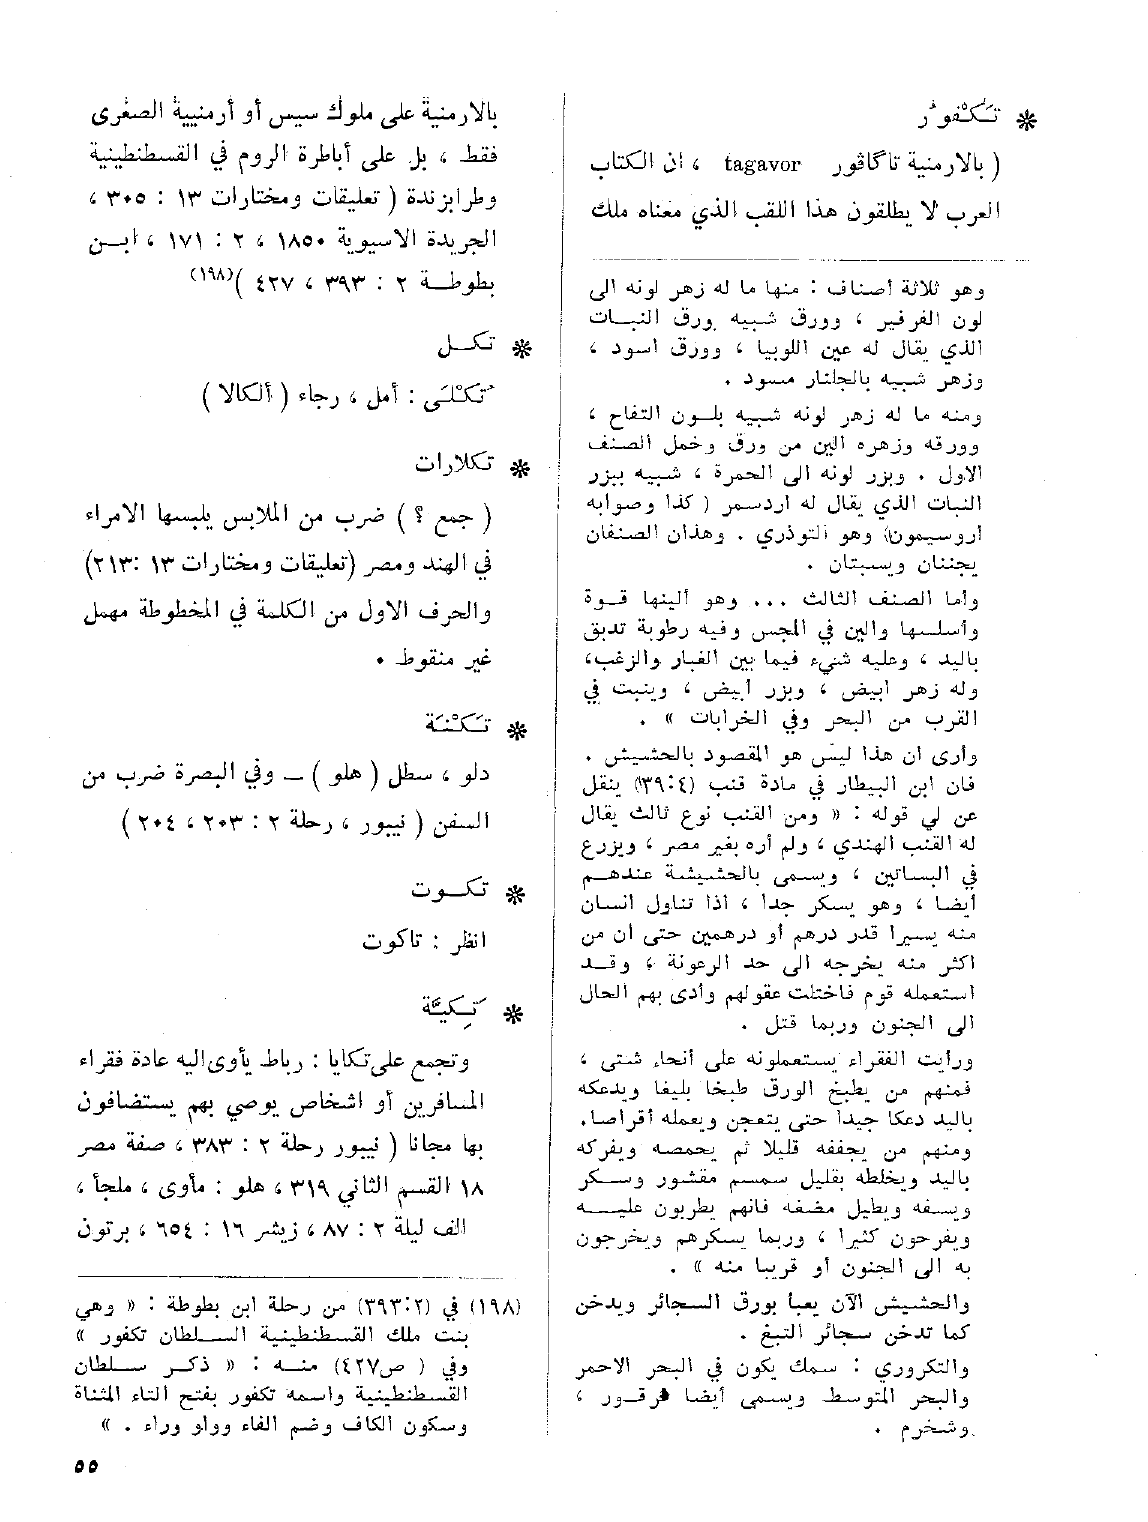 * تَكْفور
( بالارمنية تاكاڤور tagavor ، ان الكتاب
العرب لا يطلقون هذا اللقب الذي معناه ملك
وهو ثلاثة أصناف : منها ما له زهر لونه الى
لون الفرفير ، وورق شبيه بورق النبات
الذي يقال له عين اللوبيا ، وورق اسود ،
وزهر شبيه بالجلنار مسود .
ومنه ما له زهر لونه شبيه بلون التفاح ،
وورقه وزهره الين من ورق وخمل الصنف
الاول . وبزر لونه الى الحمرة ، شبيه ببزر
النبات الذي يقال له اردسمر ( كذا وصوابه
أروسيمون) وهو التوذري . وهذان الصنفان
يجننان ويسبتان .
وأما الصنف الثالث ... وهو ألينها قوة
وأسلسها والين في المجس وفيه رطوبة تدبق
باليد ، وعليه شيء فيما بين الغبار والزغب،
وله زهر ابيض ، وبزر أبيض ، وينبت في
القرب من البحر وفي الخرابات » .
وأرى ان هذا ليس هو المقصود بالحشيش .
فان ابن البيطار في مادة قنب (٤:١٣٩) ينقل
عن لي قوله : « ومن القنب نوع ثالث يقال
له القنب الهندي ، ولم أره بغير مصر ، ويزرع
في البساتين ، ويسمى بالحشيشة عندهم
أيضا ، وهو يسكر جدا ، اذا تناول انسان
منه يسيرا قدر درهم أو درهمين حتى ان من
اكثر منه يخرجه الى حد الرعونة ، وقد
استعمله قوم فاختلت عقولهم وأدى بهم الحال
الى الجنون وربما قتل .
ورأيت الفقراء يستعملونه على أنحاء شتى ،
فمنهم من يطبخ الورق طبخا بليغا ويدعكه
باليد دعكا جيدا حتى يتعجن ويعمله أقراصا.
ومنهم من يجففه قليلا ثم يحمصه ويفركه
باليد ويخلطه بقليل سمسم مقشور وسكر
ويسفه ويطيل مضغه فانهم يطربون عليه
ويفرحون كثيرا ، وربما يسكرهم ويخرجون
به الى الجنون أو قريبا منه » .
والحشيش الآن يعبأ بورق السجائر ويدخن
كما تدخن سجائر التبغ .
والتكروري : سمك يكون في البحر الاحمر
والبحر المتوسط ويسمى أيضا فرقور ،
وشخرم .
بالارمنية على ملوك سيس أو أرمنيية الصغرى
فقط ، بل على أباطرة الروم في القسطنطينية
وطرابزندة ( تعليقات ومختارات ١٣ : ٣٠٥ ،
الجريدة الاسيوية ١٨٥٠ ، ٢ : ١٧١ ، ابن
بطوطة ٢ : ٣٩٣ ، ٤٢٧ )(١٩٨)
* تكل
تَكْلَى : أمل ، رجاء ( ألكالا )
* تكلارات
( جمع ؟ ) ضرب من الملابس يلبسها الامراء
في الهند ومصر (تعليقات ومختارات ١٣ :٢١٣)
والحرف الاول من الكلمة في المخطوطة مهمل
غير منقوط .
* تَكْنَة
دلو ، سطل ( هلو ) – وفي البصرة ضرب من
السفن ( نيبور ، رحلة ٢ : ٢٠٣ ، ٢٠٤ )
* تكوت
انظر : تاكوت
* تَكِيَّة
وتجمع على تكايا : رباط يأوى اليه عادة فقراء
المسافرين أو اشخاص يوصي بهم يستضافون
بها مجانا ( نيبور رحلة ٢ : ٣٨٣ ، صفة مصر
١٨ القسم الثاني ٣١٩ ، هلو : مأوى ، ملجأ ،
الف ليلة ٢ : ٨٧ ، زيشر ١٦ : ٦٥٤ ، برتون
(١٩٨) في (٢:٣٩٣) من رحلة ابن بطوطة : « وهي
بنت ملك القسطنطينية السلطان تكفور »
وفي ( ص٤٢٧) منه : « ذكر سلطان
القسطنطينية واسمه تكفور بفتح التاء المثناة
وسكون الكاف وضم الفاء وواو وراء . »
٥٥